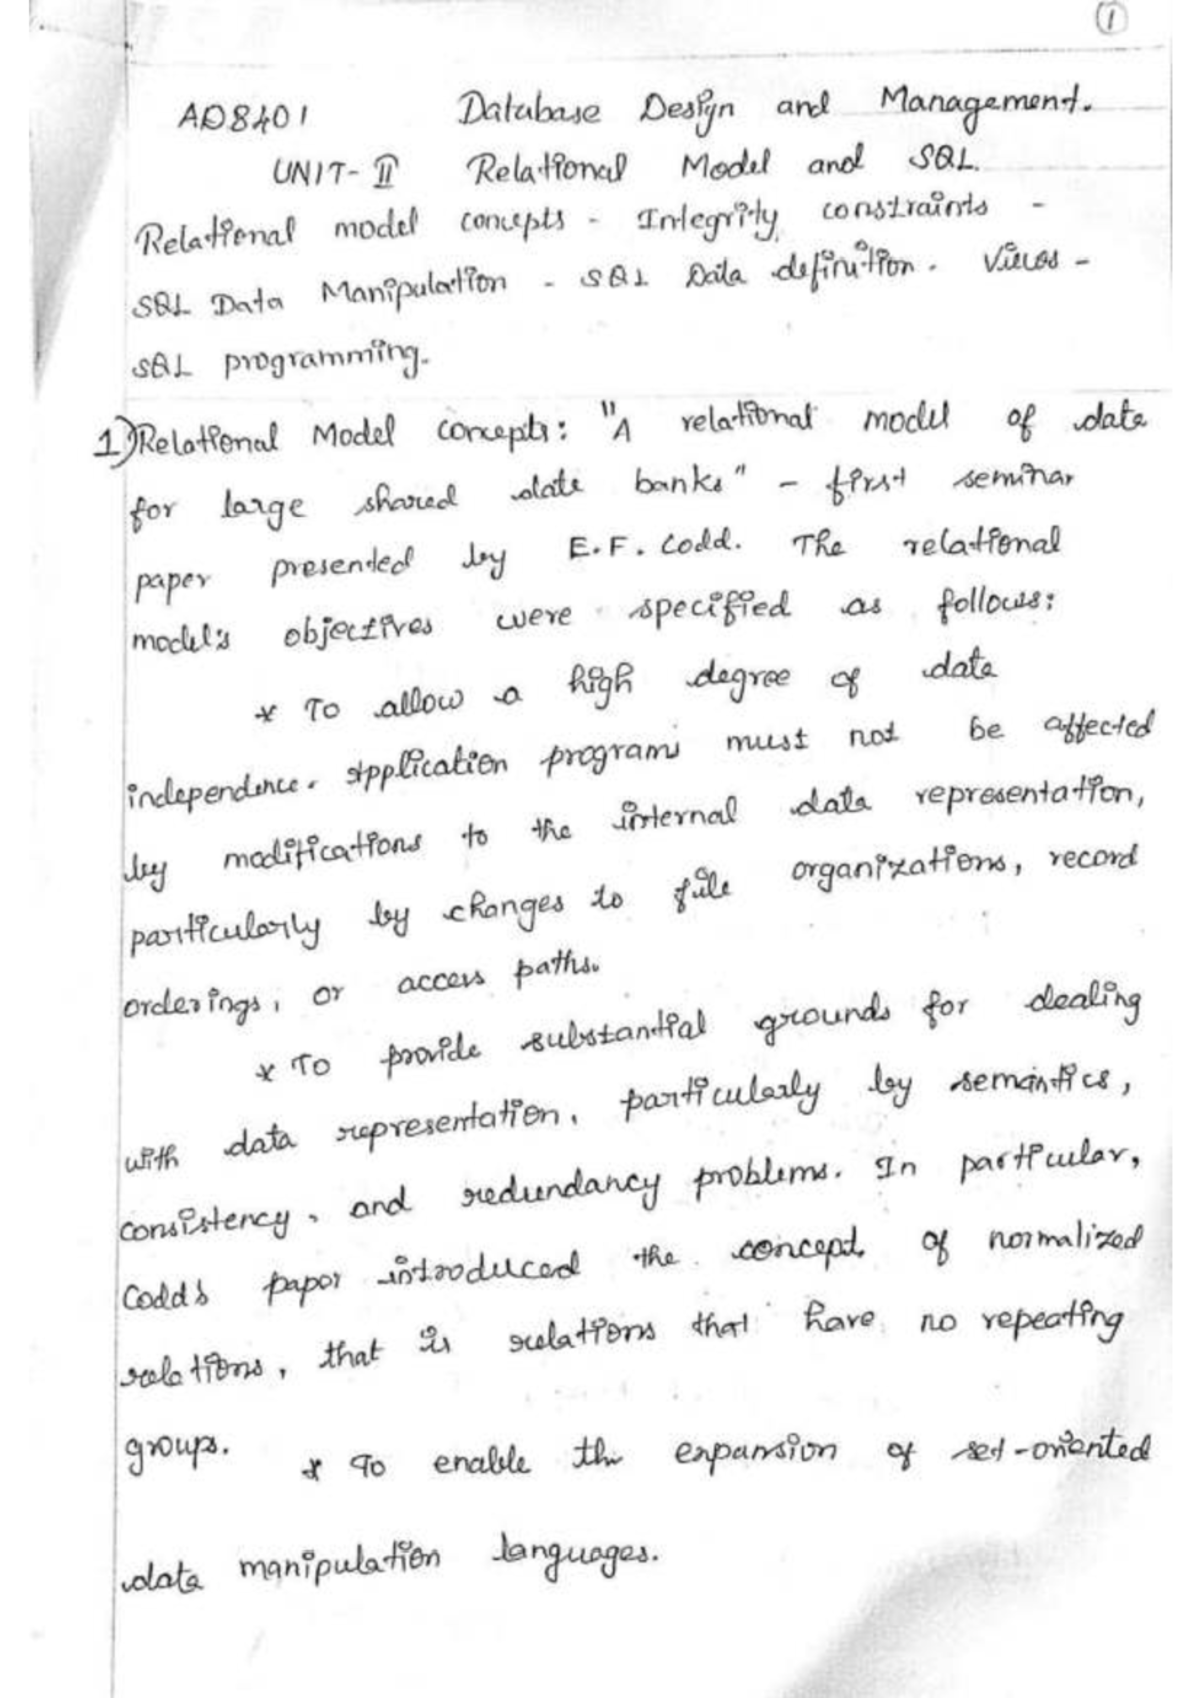 1
AD8401 Database Design and Management.
UNIT-II Relational Model and SQL.
Relational model concepts - Integrity constraints -
SQL Data Manipulation - SQL Data definition. Views -
SQL programming.
1) Relational Model concepts: "A relational model of data
for large shared data banks" - first seminar
paper presented by E.F. Codd. The relational
model's objectives were specified as follows:
* To allow a high degree of data
independence. Application programs must not be affected
by modifications to the internal data representation,
particularly by changes to file organizations, record
orderings, or access paths.
* To provide substantial grounds for dealing
with data representation, particularly by semantics,
consistency, and redundancy problems. In particular,
Codd's paper introduced the concept of normalized
relations, that is relations that have no repeating
groups.
* To enable the expansion of set-oriented
data manipulation languages.